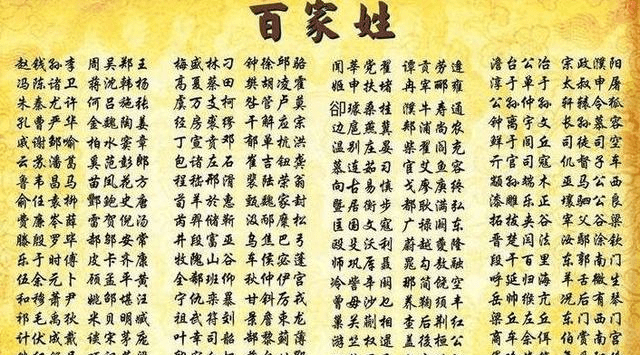 百家姓
赵钱孙李 周吴郑王 梅盛林刁 钟徐邱骆 闻莘党翟 谭贡劳逄 澹台公冶 宗政濮阳
冯陈诸卫 蒋沈韩杨 高夏蔡田 樊胡凌霍 姬申扶堵 冉宰郦雍 淳于单于 太叔申屠
朱秦尤许 何吕施张 虞万支柯 昝管卢莫 卻璩桑桂 濮牛寿通 公孙仲孙 轩辕令狐
孔曹严华 金魏陶姜 经房裘缪 干解应宗 边扈燕冀 郏浦尚农 钟离宇文 长孙慕容
戚谢邹喻 柏水窦章 丁宣贲邓 郁单杭洪 温别庄晏 柴瞿阎充 鲜于闾丘 司徒司空
云苏潘葛 奚范彭郎 包诸左石 崔吉钮龚 慕连茹习 宦艾鱼容 亓官司寇 仉督子车
鲁韦昌马 苗凤花方 程嵇邢滑 裴陆荣翁 向古易慎 戈廖庾终 颛孙端木 巫马公西
俞任袁柳 酆鲍史唐 荀羊於惠 甄麴家封 暨居衡步 都耿满弘 漆雕乐正 壤驷公良
费廉岑薛 雷贺倪汤 芮羿储靳 汲邴糜松 匡国文寇 广禄阙东 拓跋夹谷 宰父谷梁
滕殷罗毕 郝邬安常 井段富巫 乌焦巴弓 殴殳沃利 蔚越夔隆 晋楚闫法 汝鄢涂钦
乐于时傅 皮卞齐康 牧隗山谷 车侯宓蓬 师巩厍聂 晁勾敖融 段干百里 东郭南门
伍余元卜 顾孟平黄 全郗班仰 秋仲伊宫 冷訾辛阚 那简饶空 呼延归海 羊舌微生
和穆萧尹 姚邵湛汪 宁仇栾暴 甘钭厉戎 曾毋沙乜 养鞠须丰 岳帅缑亢 况后有琴
祁毛禹狄 米贝明臧 祖武符刘 景詹束龙 巢关蒯相 查后荆红 梁丘左丘 东门西门
计伏成戴 谈宋茅庞 叶幸司韶 游竺权逯 盖益桓公 商牟佘佴 伯赏南宫